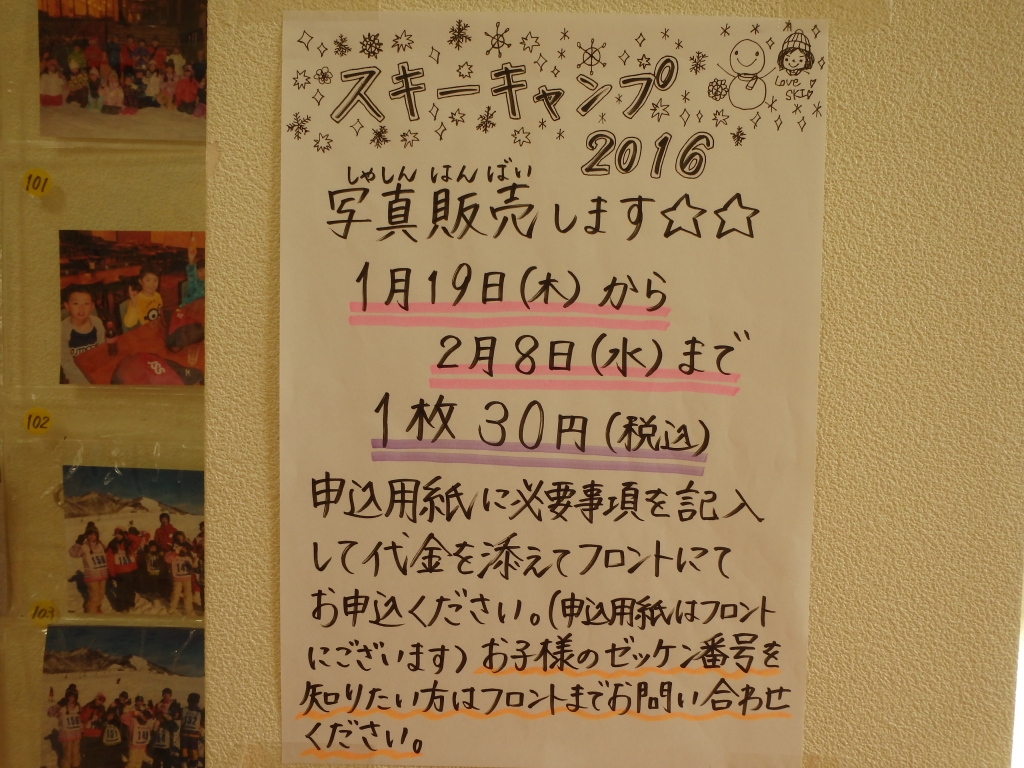 スキーキャンプ
Love
SKI
2016
しゃしん はんばい
写真販売します☆☆
1月19日(木)から
2月8日(水)まで
1枚30円(税込)
申込用紙に必要事項を記入
して代金を添えてフロントにて
お申込ください。(申込用紙はフロント
にございます)お子様のゼッケン番号を
知りたい方はフロントまでお問い合わせ
ください。
101
102
103